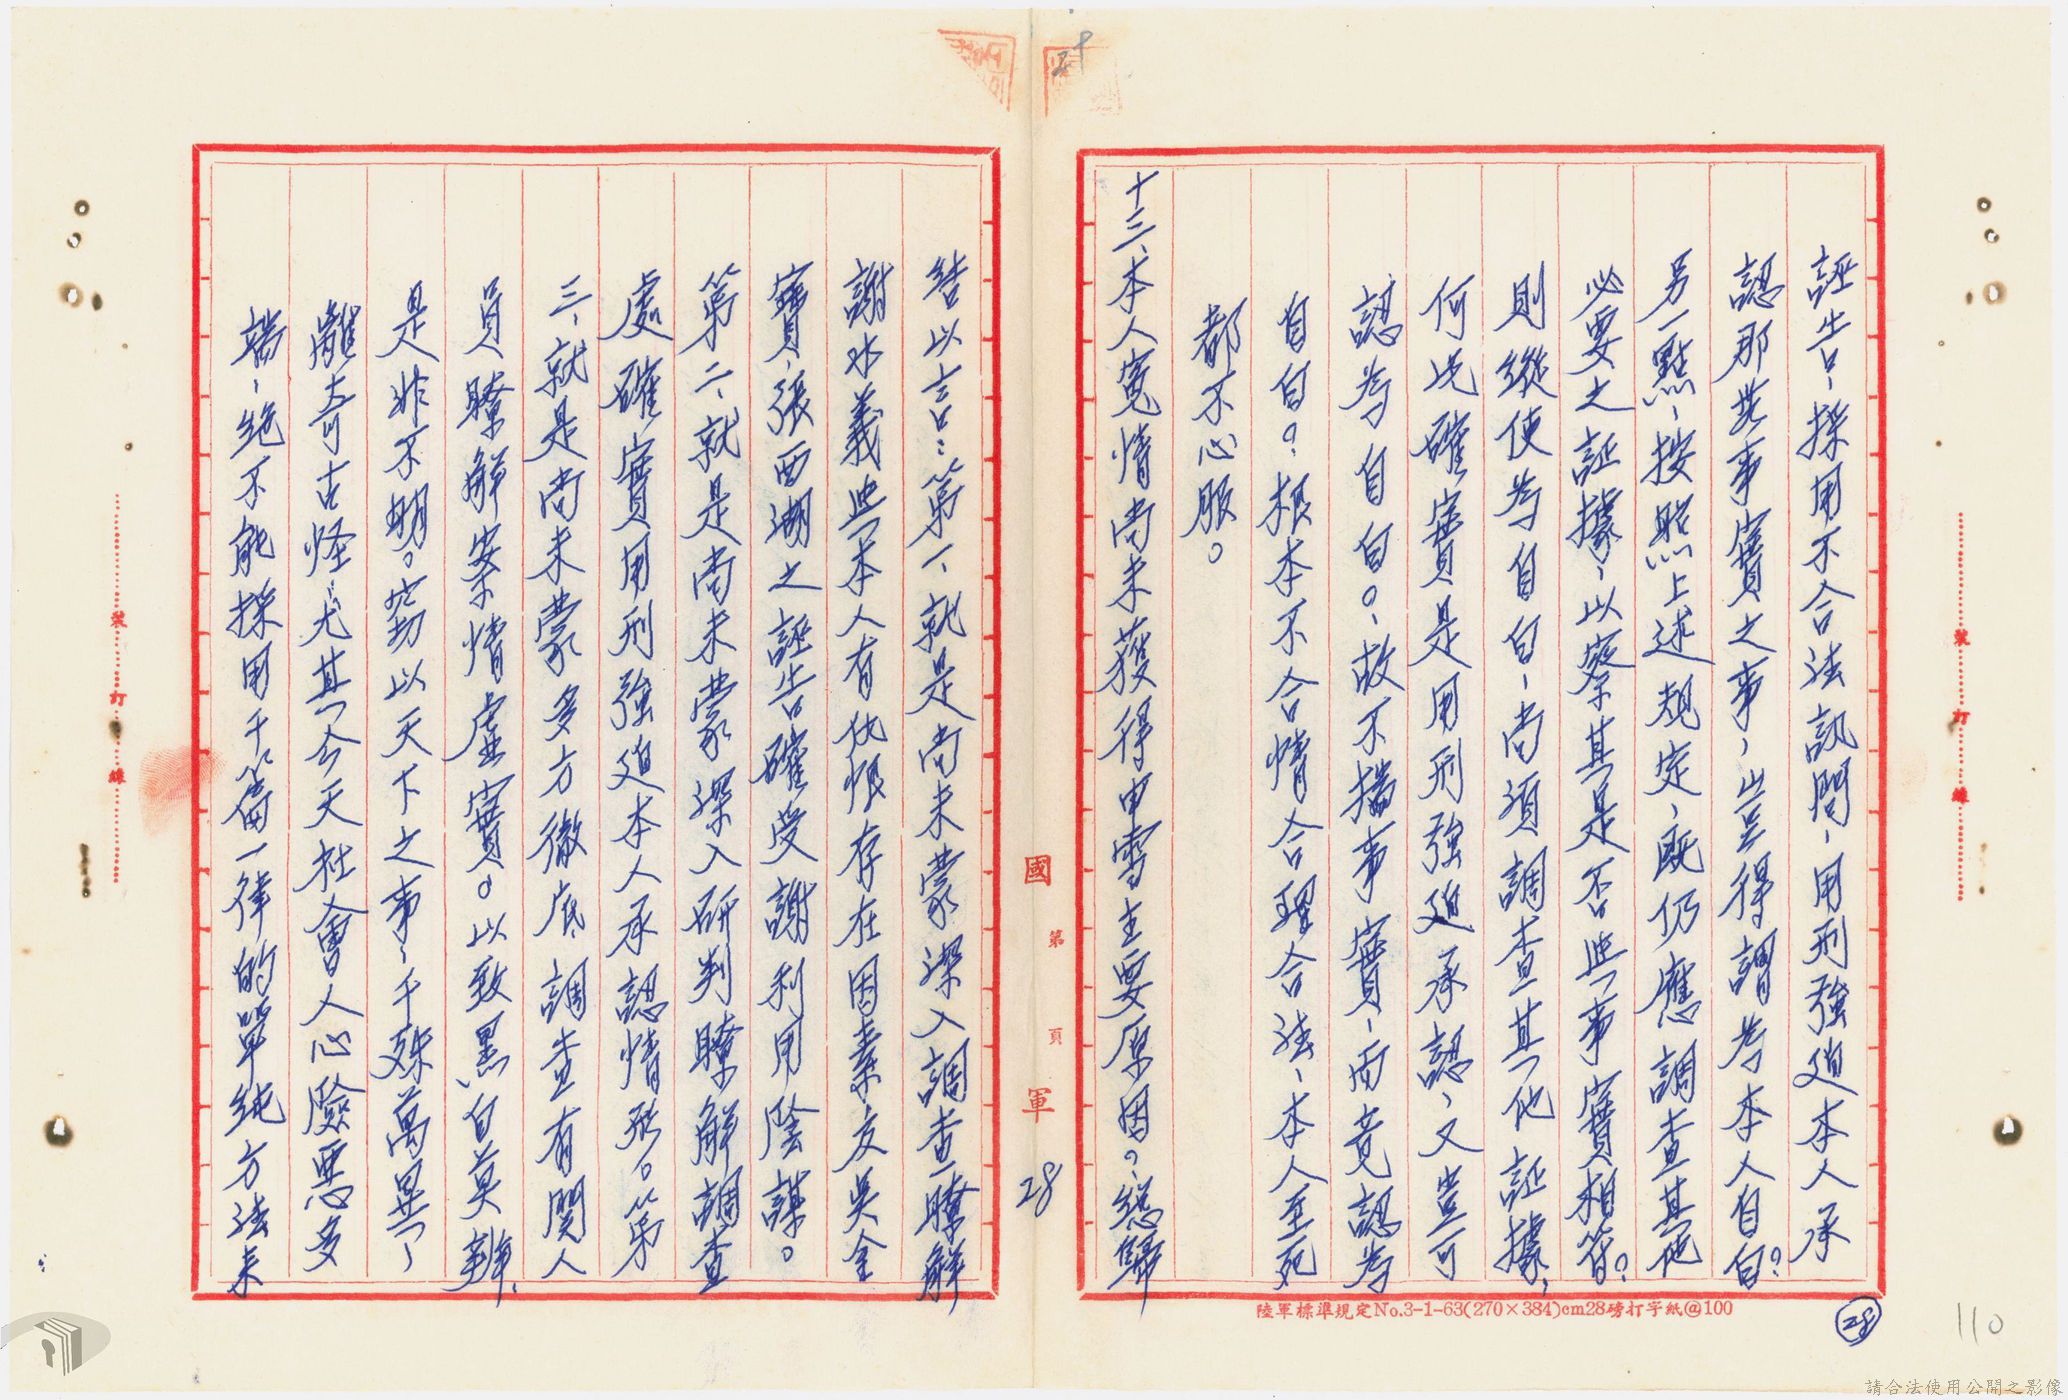 28
誣告、採用不合法訊問、用刑強迫本人承
認那些事實之事、豈得謂為本人自白?
另一點、按照上述規定、既仍應調查其他
必要之証據、以察其是否與事實相符?
則縱使為自白、尚須調查其他証據、
何況確實是用刑強迫承認、又豈可
認為自白。、故不揣事實、而竟認為
自白?根本不合情合理合法、本人至死
都不心服。
十三、本人冤情尚未獲得申雪主要原因。總歸
國 第 頁 軍 28
結以言:第一、就是尚未蒙深入調查瞭解
謝水義與本人有仇恨存在因素、友吳金
寶、張西湖之誣告確受謝利用陰謀。
第二、就是尚未蒙深入研判瞭解調查
處確實用刑強迫本人承認情形。第
三、就是尚未蒙多方徹底調查有関人
員瞭解案情虛實。以致黑白莫辨、
是非不明。竊以天下之事、千殊萬異、
離奇古怪、尤其今天社會人心險惡多
端、絕不能採用千篇一律的單純方法来
裝 訂 線
裝 訂 線
陸軍標準規定No.3-1-63(270×384)cm28磅打字紙@100
28
110
請合法使用公開之影像